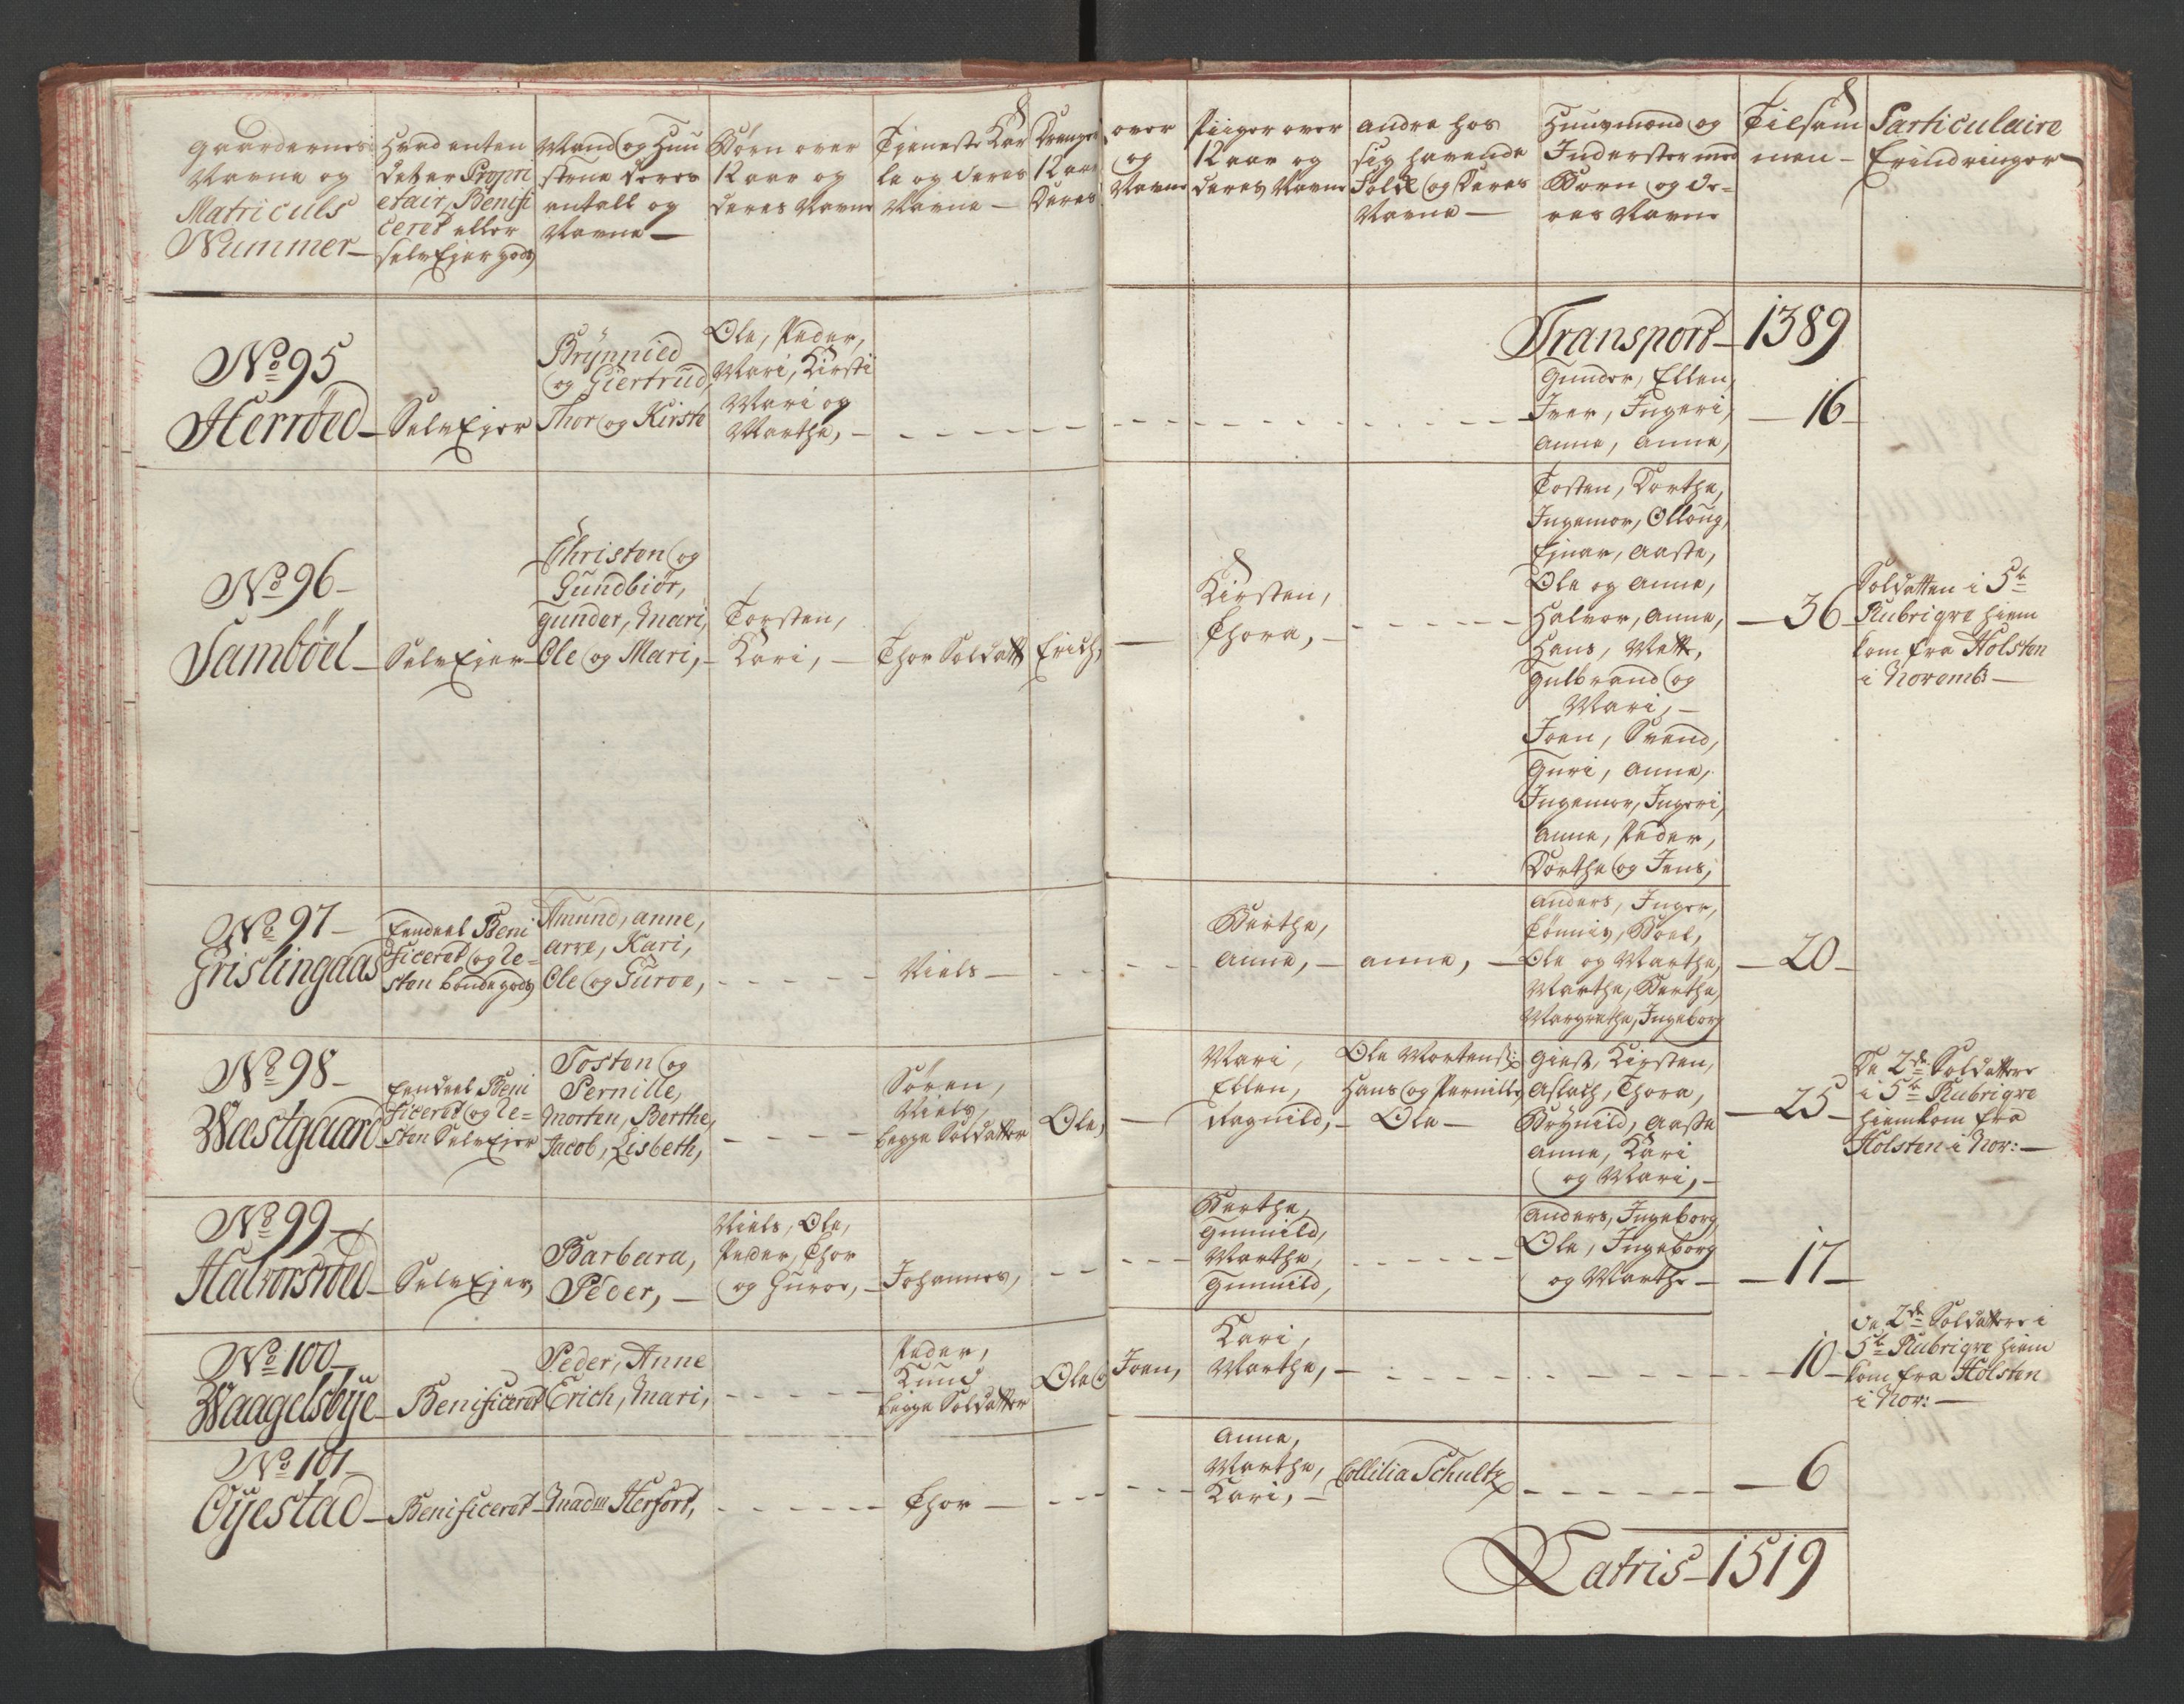 Gaardernes
Navne og
Matriculs
Nummer
Hvad enten
det er Propri
etair, Benifi
ceret eller
selv Ejer gods
Mand og Huu
strue deres
antall og
Navne
Børn over
12 aar og
deres Navne
Tieneste Kar
le og deres
Navne
Drenge over
12 aar og
Deres Navne
Piiger over
12 aar og
deres Navne
andre hos
sig havende
Folck og Deres
Navne
Huusmænd og
Inderster med
Børn og de-
res Navne
Tilsam
men
Particulaire
Erindringer
Transport 1389
No 95
Herröed
Selv Ejer
Brÿnnild
og Giertrud,
Thor og Kirste
Ole, Peder,
Mari, Kirsti
Mari og
Marthe,
Gunder, Ellen,
Iver, Ingeri,
Anne, Anne,
16
No 96
Tamböel
Selv Ejer
Christen og
Gundbiör,
Gunder, Mari,
Ole og Mari,
Torsten,
Kari,
Thor Soldatt
Erich,
Kirsten,
Thora,
Tosten, Dorthe,
Ingemor, Olloug,
Ejner, Aaste,
Ole og Anne,
Halvor, Anne,
Hans, Mette,
Gulbrand og
Mari,
Joen, Svend,
Guri, Anne,
Ingemor, Ingeri,
Anne, Peder,
Dorthe og Jens,
36
Soldatten i 5te
Rubriqve hiem
kom fra Holsten
i Novemb:
No 97
Grislingaas
Eendeel Beni
ficeret og Re-
sten bondegods
Amund, Anne,
Arve, Kari,
Ole og Guroe,
Niels
Berthe,
Anne,
Anne,
Anders, Inger,
Tönnis, Boel,
Ole og Marthe,
Marthe, Berthe,
Margrethe, Ingeborg
20
No 98
Wæstgaard
Eendeel Beni
ficeret og Re-
sten Selv Ejer
Tosten og
Pernille,
Morten, Berthe,
Jacob, Lisbeth,
Sören,
Niels,
begge Soldatter
Ole,
Mari,
Ellen,
Ragnild,
Ole Mortens:
Hans og Pernille,
Ole
Giest, Kirsten,
Aslach, Thora,
Brÿnild, Aaste
Anne, Kari
og Mari,
25
De 2de Soldatter
i 5te Rubriqve
hiemkom fra
Holsten i Nov:
No 99
Halvorsröed
Selv Ejer,
Barbara,
Peder,
Niels, Ole,
Peder, Thor
og Guroe,
Johannes,
Berthe,
Gunnild,
Marthe,
Gunnild,
Anders, Ingeborg,
Ole, Ingeborg
og Marthe
17
No 100
Waagelsbÿe
Benificeret
Peder, Anne
Erich, Mari,
Peder,
Knud
begge Soldatter
Ole og Joen,
Kari,
Marthe,
10
De 2de Soldatter i
5te Rubriqve hiem
kom fra Holsten
i Nov:
No 101
Oÿestad
Benificeret
Madm Herfort,
Thor
Anne,
Marthe,
Kari,
Collilia Schultz
6
Latris 1519